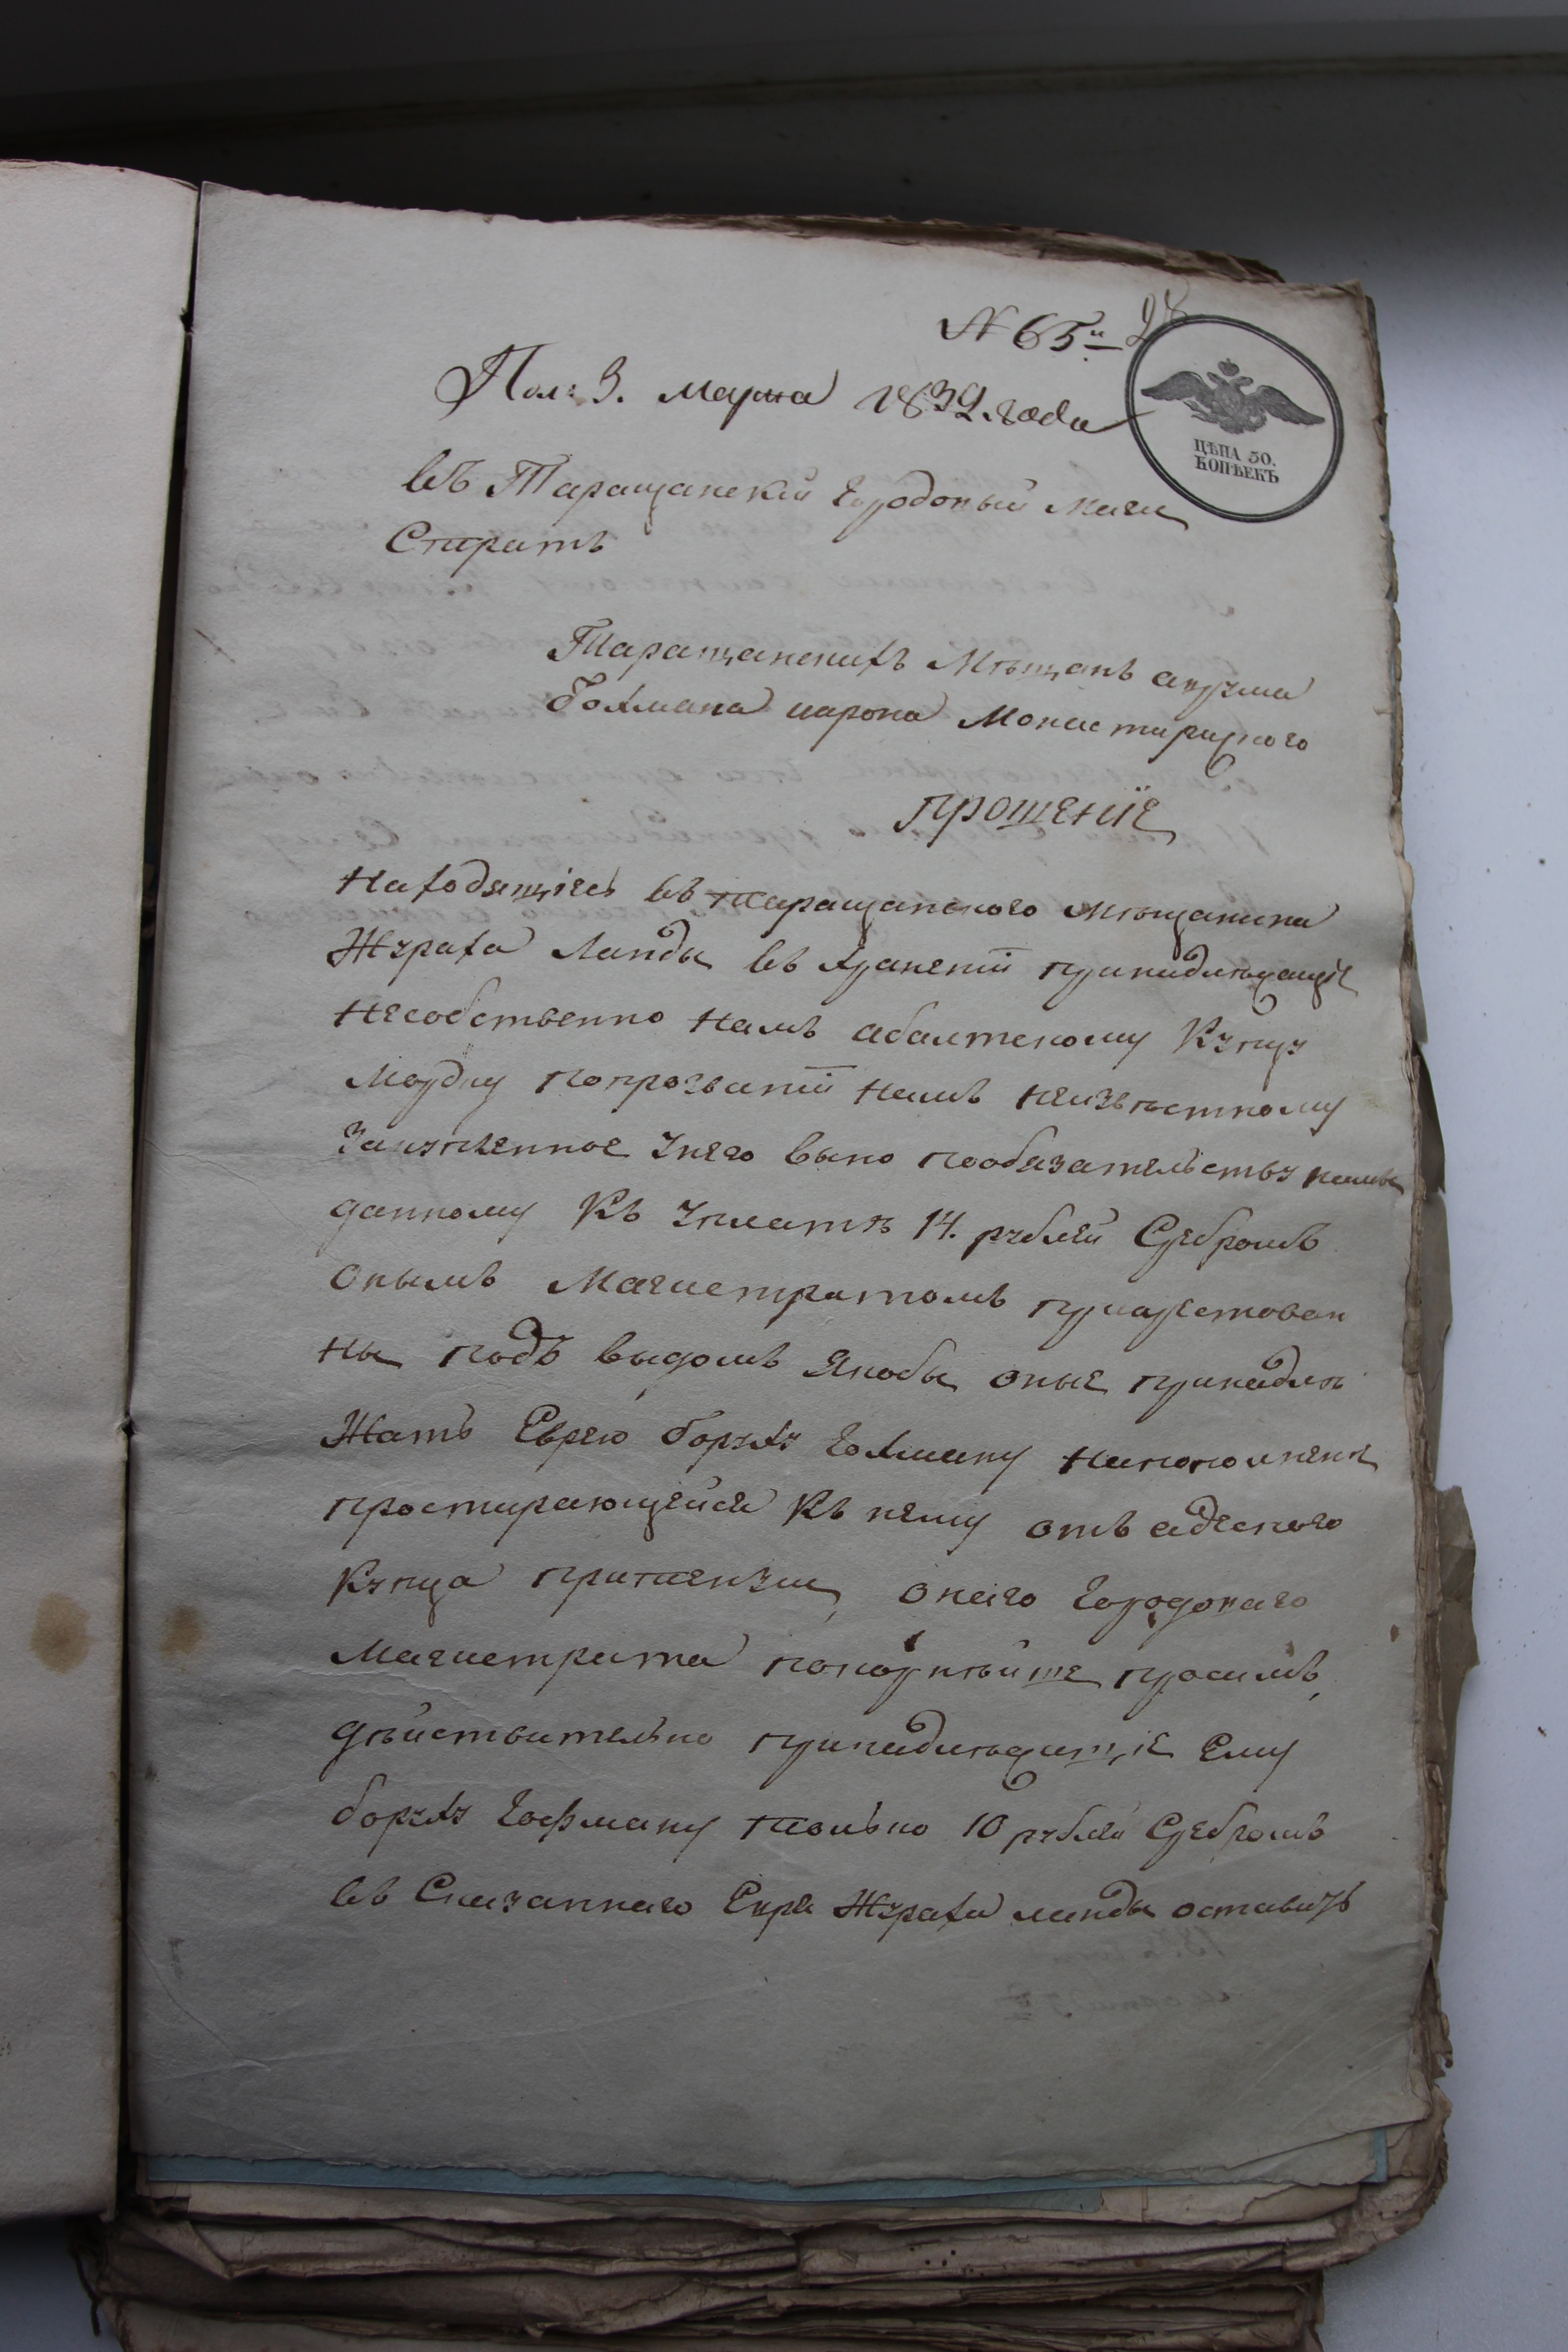 N 65й 28
Пол: 3. Марта 1839. года
ЦѢНА 50.
КОПѢЕКЪ
Въ Таращанский Городовый Маги
Стратъ
Таращанскихъ Мѣщанъ
Гохмана Монастирицкого
ПРОШЕНИЕ
Находящiесь въ таращанского мѣщанина
Жураха Ланды въ хранении принадлежащiе
несобственно намъ купцу
попрозвании намъ неизвѣстному
унего вино пообязательству намъ
данному къ уплатѣ 14. рублей Сребромъ
онымъ Магистратомъ приарестован
ны подъ выдомъ якобы оные принадлѣ
жатъ Еврею Боруху Гохману напополнение
простирающейся къ нему отъ адеского
купца притензии, онаго Городоваго
Магистрата покорнѣйше просимъ,
дѣйствително принадлѣжащiе Ему
Боруху Гофману толко 10 рублей Сребромъ
въ Сказаннаго Еврея Жураха ланды оставить